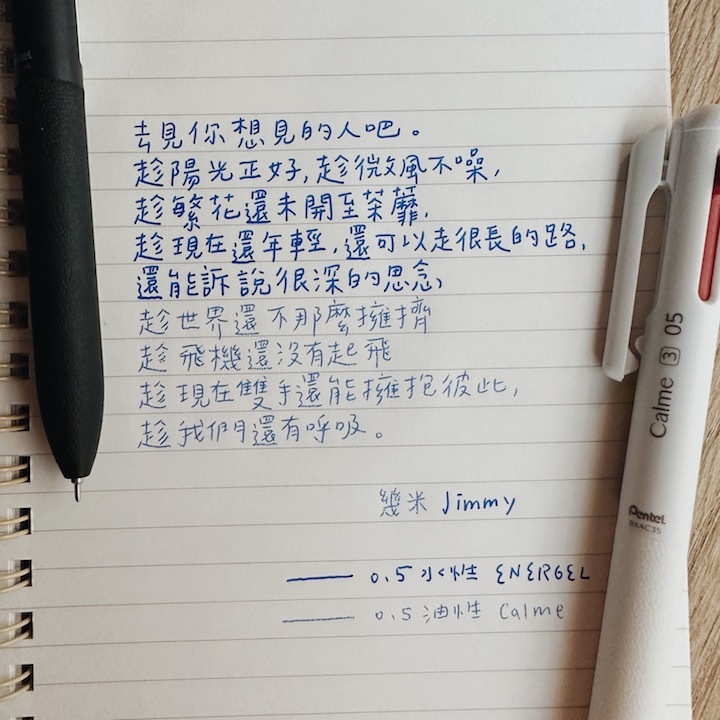 去見你想見的人吧。
趁陽光正好,趁微風不噪,
趁繁花還未開至荼蘼,
趁現在還年輕,還可以走很長的路,
還能訴說很深的思念、
趁世界還不那麼擁擠
趁飛機還沒有起飛
趁現在雙手還能擁抱彼此,
趁我們還有呼吸。
幾米 Jimmy
0.5 水性 ENERGEL
0.5 油性 Calme
Calme 3 05
Pentel
BXAC35